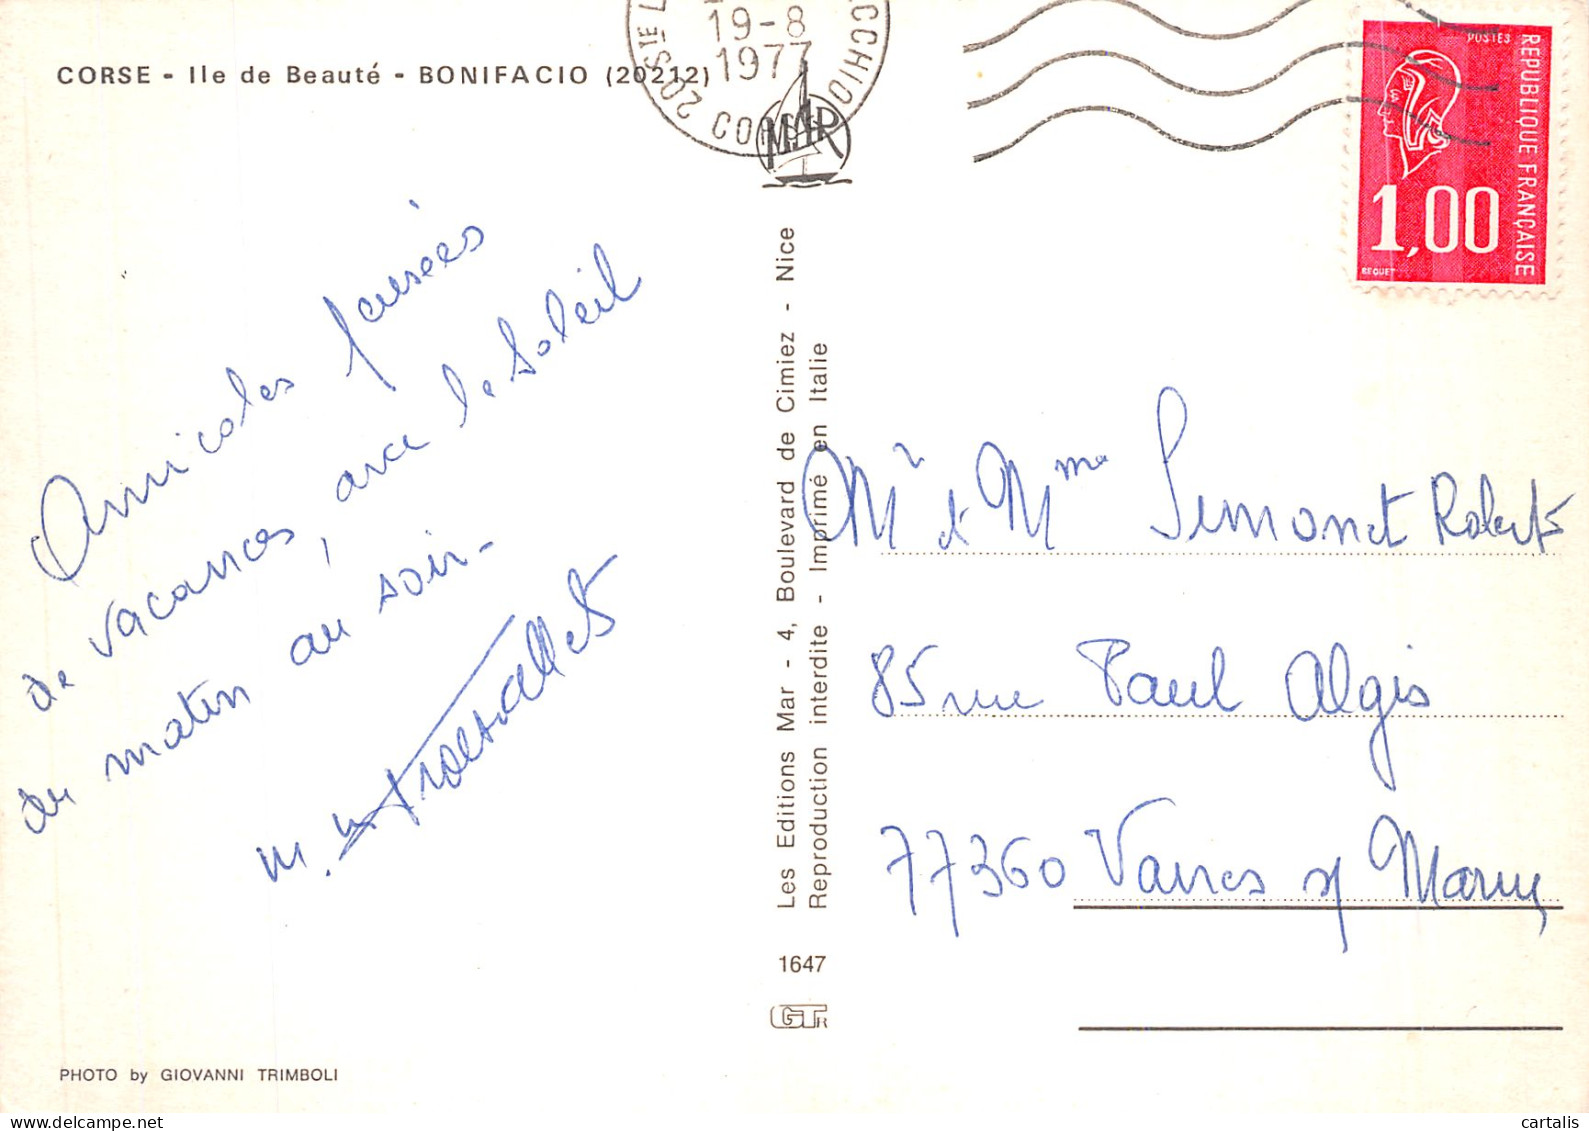 CORSE - Ile de Beauté - BONIFACIO (20212)
19-8
1977
MAR
POSTES
REPUBLIQUE FRANÇAISE
1,00
BEQUET
Amicales pensées
de vacances, avec le soleil
du matin au soir-
Les Editions Mar - 4, Boulevard de Cimiez - Nice
Reproduction interdite - Imprimé en Italie
1647
GTR
Mr et Mme Simonet Robert
85 rue Paul Algis
77360 Vaires s/ Marne
PHOTO by GIOVANNI TRIMBOLI
cartalis